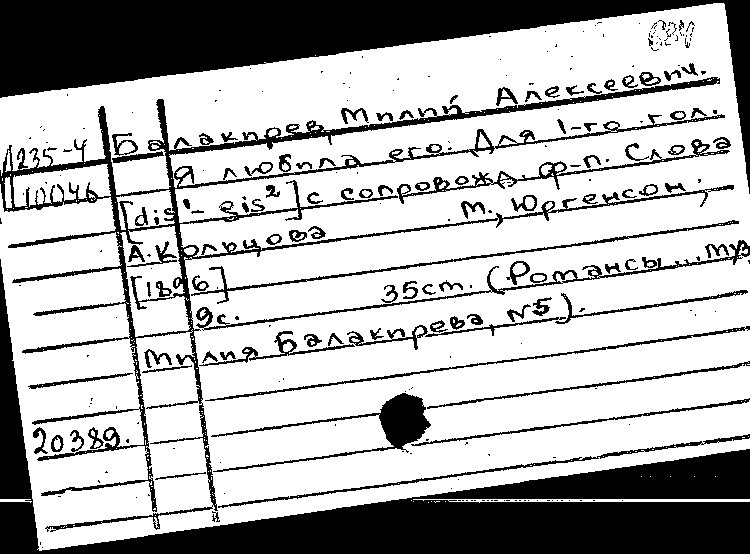 Балакирев, Милий Алексеевич.
Д235-4
Я любила его. Для 1-го гол.
10046
[dis¹- gis²] с сопровожд. ф-п. Слова
А. Кольцова М., Юргенсон;
[1896]
9с. 35ст. (Романсы... муз
Милия Балакирева, N5).
20389.